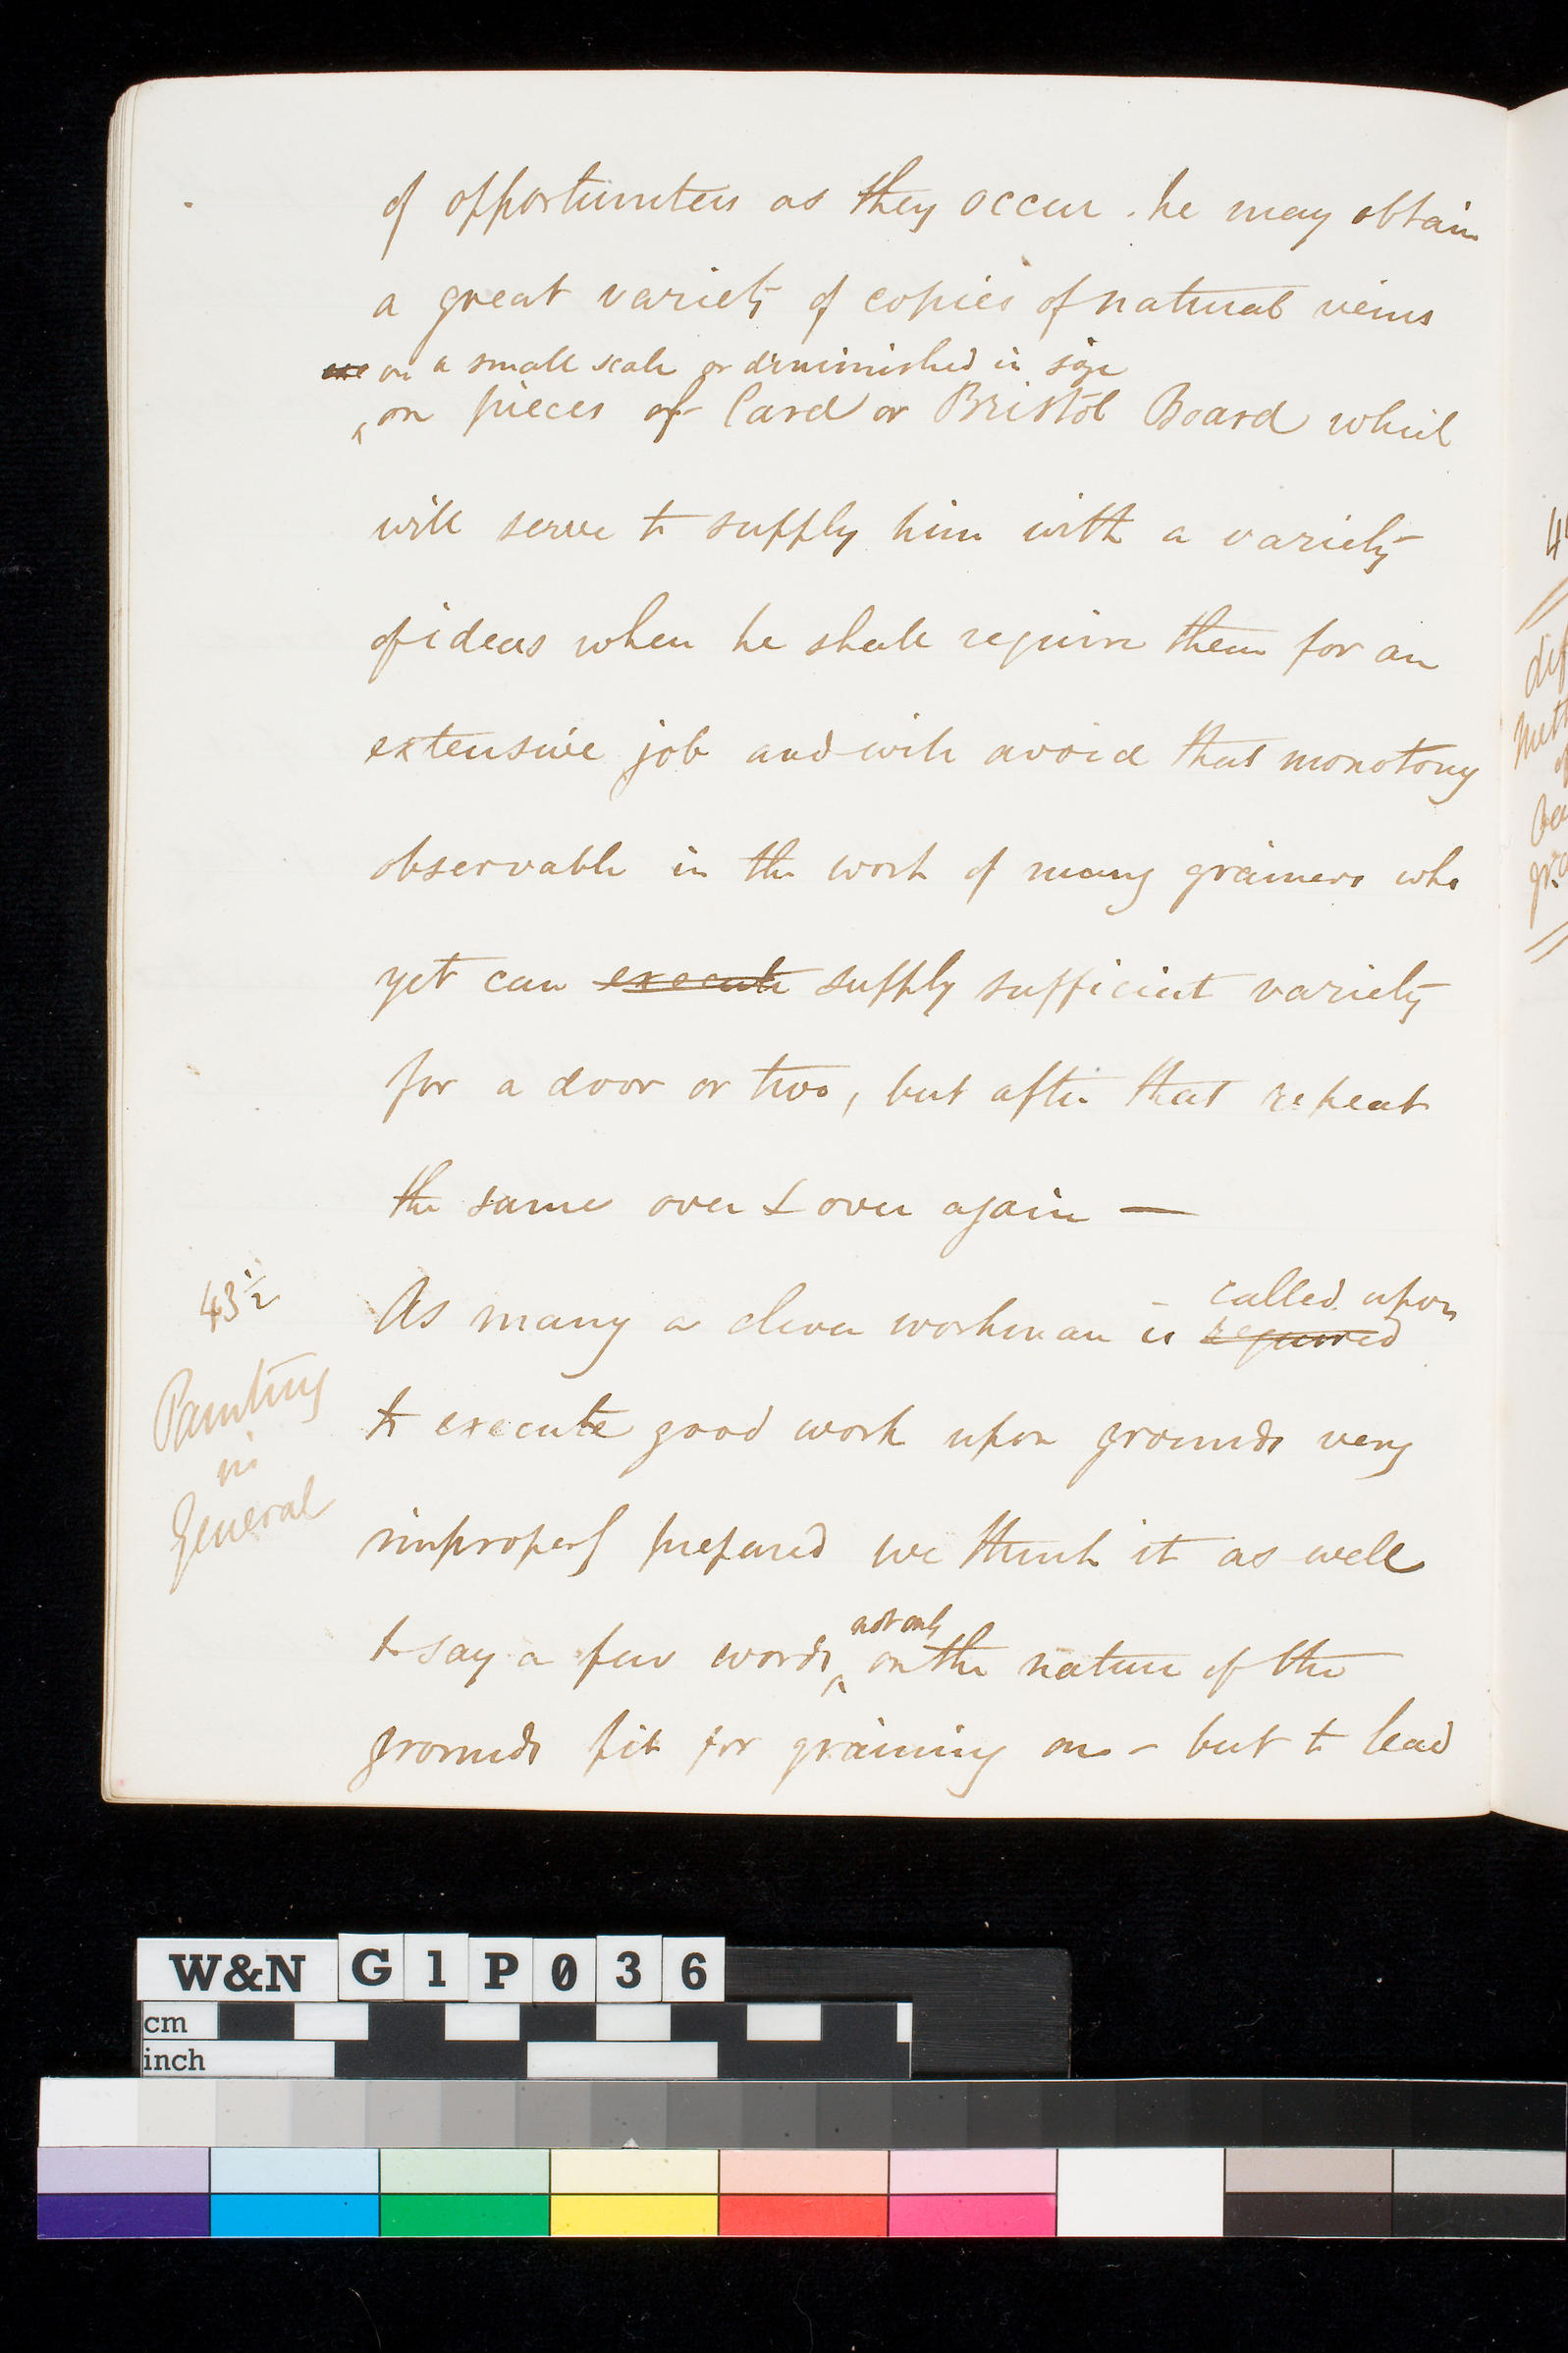 of opportunities as they occur. he may obtain
a great variety of copies of natural veins
on a small scale or diminished in size
on pieces of Card or Bristol Board which
will serve to supply him with a variety
of ideas when he shall require them for an
extensive job and will avoid that monotony
observable in the work of many grainers who
yet can execute supply sufficient variety
for a door or two, but after that repeat
the same over & over again —
called upon
43½ As many a clever workman is required
to execute good work upon grounds very
Painting
in
General
improperly prepared we think it as well
not only
to say a few words on the nature of the
grounds fit for graining on - but to lead
W&N G1P036
cm
inch